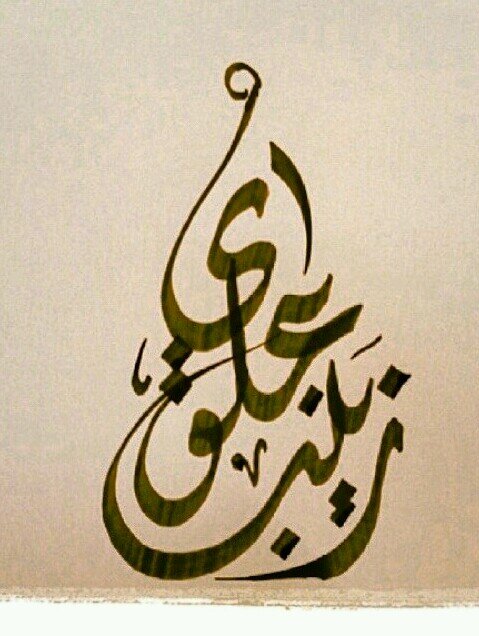 زينب علوي